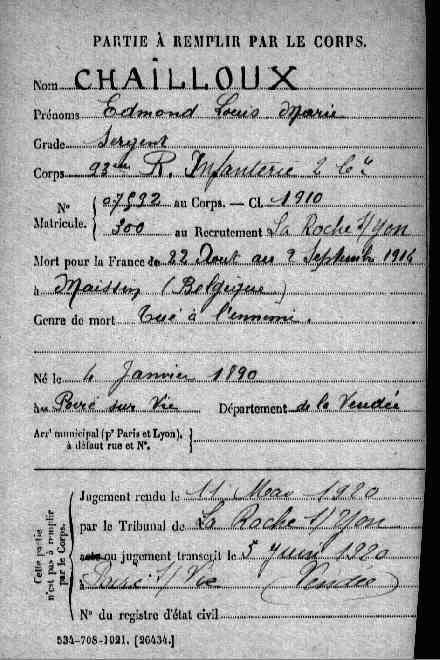 PARTIE À REMPLIR PAR LE CORPS.
Nom CHAILLOUX
Prénoms Edmond Louis Marie
Grade Sergent
Corps 93me R. Infanterie 2 Cie
N° Matricule. 07592 au Corps. — Cl. 1910
300 au Recrutement La Roche s/Yon
Mort pour la France le 22 Aout au 2 Septembre 1914
à Maissin (Belgique)
Genre de mort Tué à l'ennemi.
Né le 4 Janvier 1890
à Poiré sur Vie Département de la Vendée
Arrt municipal (pr Paris et Lyon), à défaut rue et N°.
Cette partie n'est pas à remplir par le Corps.
Jugement rendu le 11 Mars 1920
par le Tribunal de La Roche s/Yon
acte ou jugement transcrit le 5 Juin 1920
à Poiré s/Vie (Vendée)
N° du registre d'état civil
534-708-1921. [26434.]